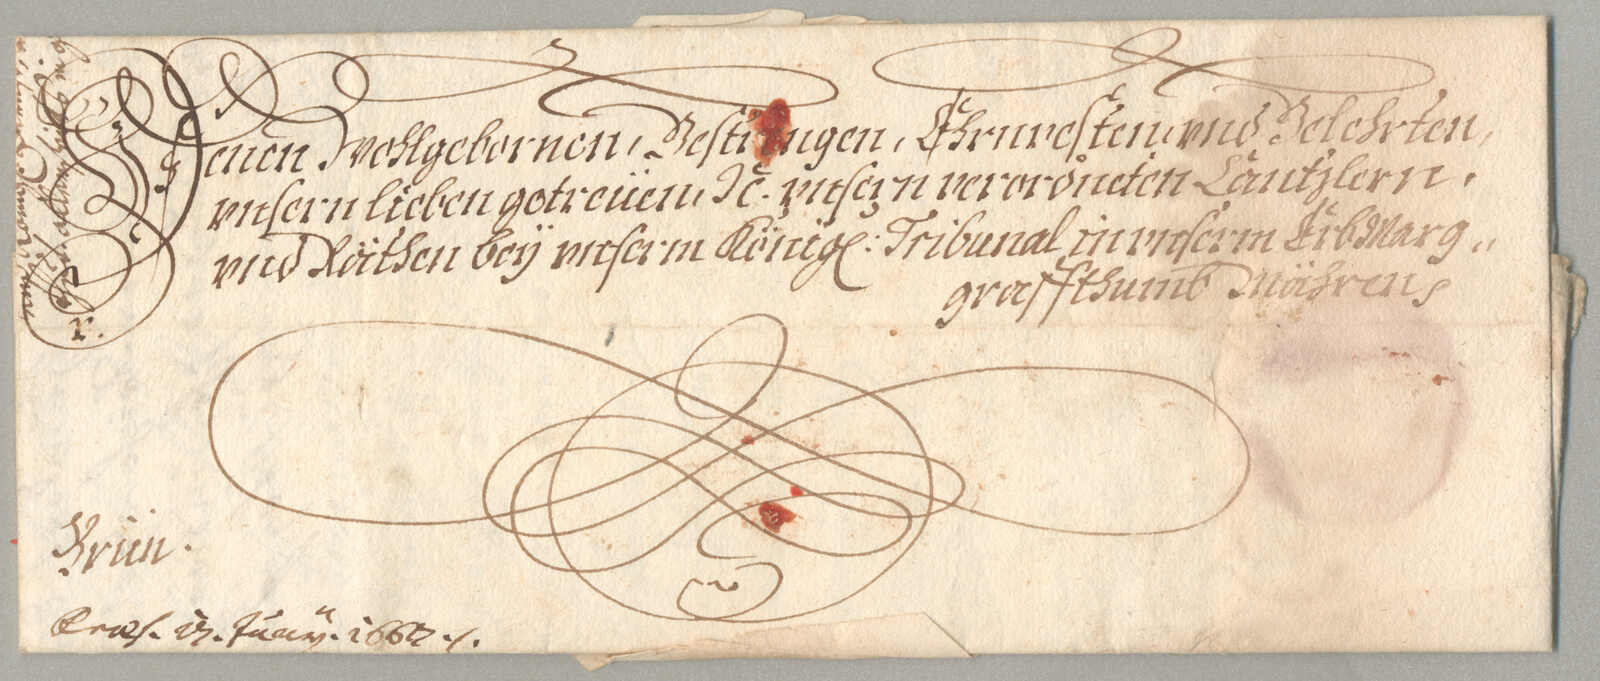 Denen Wohlgebornen, Gestrengen, Ehrnvesten, vnd Gelehrten,
vnsern lieben getreüen, N: vnsern verordneten Cantzlern,
vnd Räthen beÿ vnserm Königl: Tribunal in vnserm ErbMarg„
graffthumb Mähren,
Brün.
17. Junÿ. 1667.